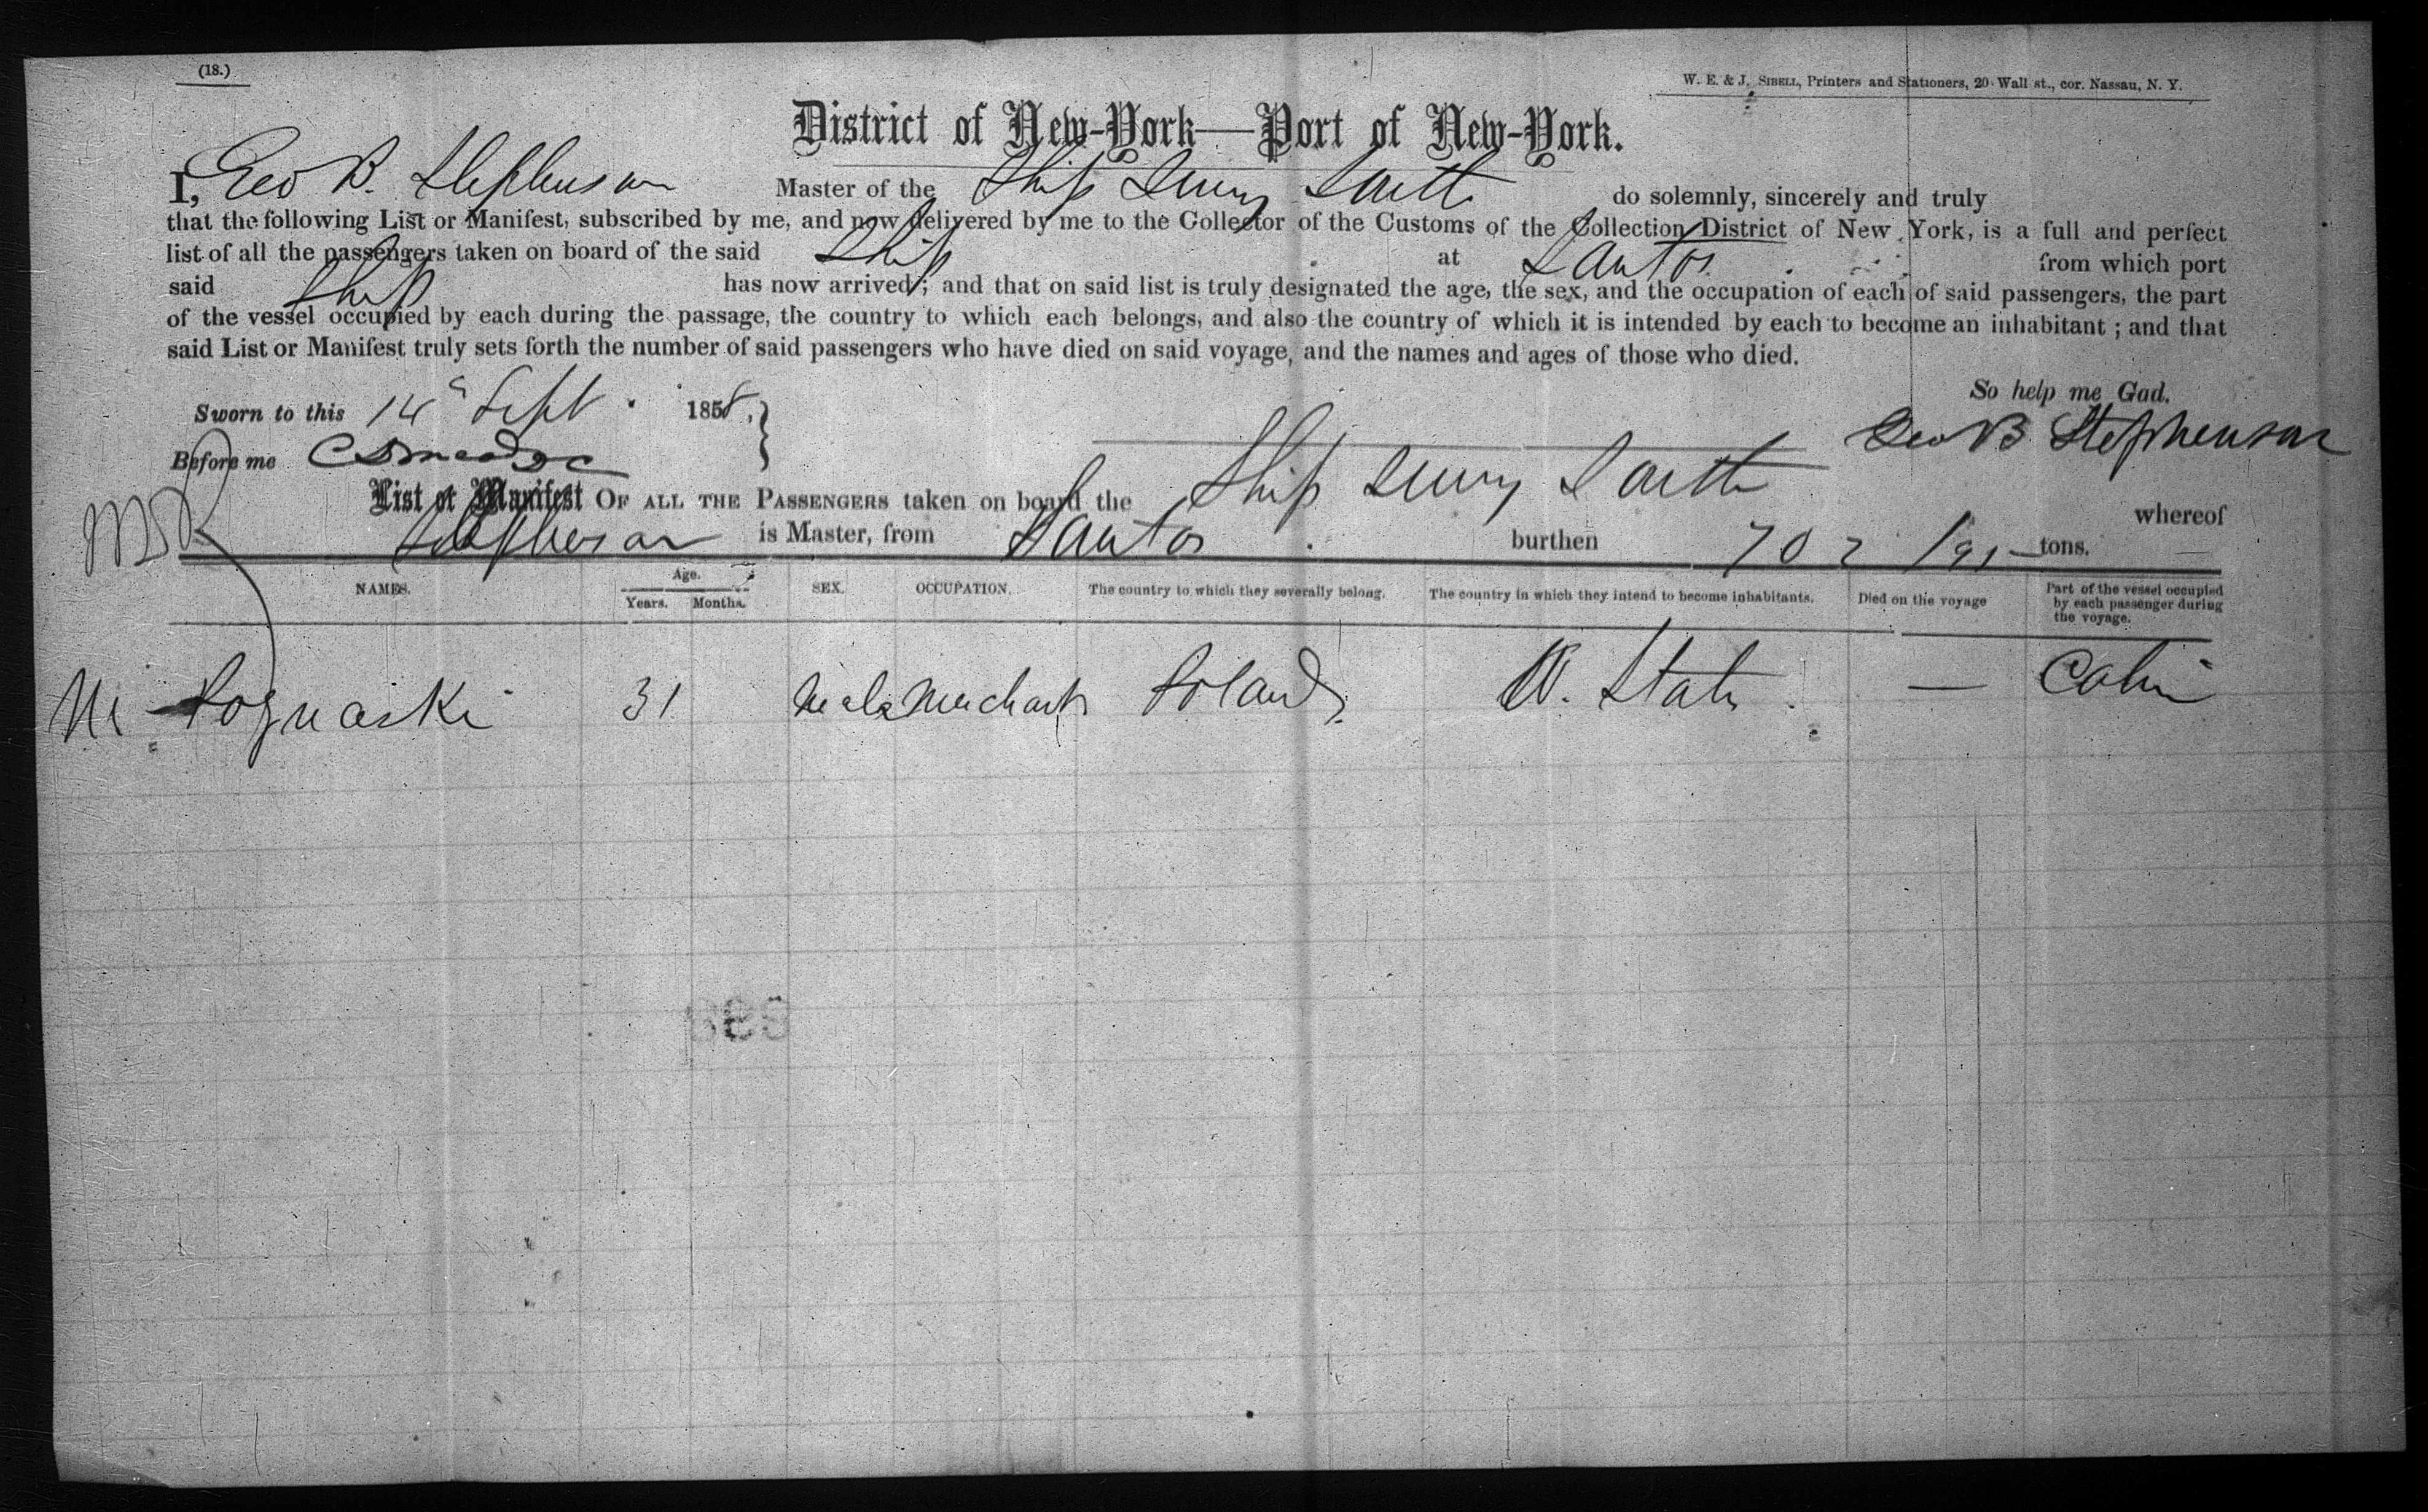 (18.)
W. E. & J. SIBELL, Printers and Stationers, 20 Wall st., cor. Nassau, N. Y.
District of New-York—Port of New-York.
I, Geo B. Stephenson Master of the Ship do solemnly, sincerely and truly
that the following List or Manifest, subscribed by me, and now delivered by me to the Collector of the Customs of the Collection District of New York, is a full and perfect
list of all the passengers taken on board of the said Ship at Santos from which port
said Ship has now arrived; and that on said list is truly designated the age, the sex, and the occupation of each of said passengers, the part
of the vessel occupied by each during the passage, the country to which each belongs, and also the country of which it is intended by each to become an inhabitant; and that
said List or Manifest truly sets forth the number of said passengers who have died on said voyage, and the names and ages of those who died.
So help me God.
Sworn to this 14" Sept. 1858.
Geo B Stephenson
Before me
List or Manifest OF ALL THE PASSENGERS taken on board the Ship whereof
Stephenson is Master, from Santos burthen 702 tons.
NAMES. Age. Years. Months. SEX. OCCUPATION. The country to which they severally belong. The country in which they intend to become inhabitants. Died on the voyage Part of the vessel occupied by each passenger during the voyage.
31 Male Merchant Poland U. States — Cabin